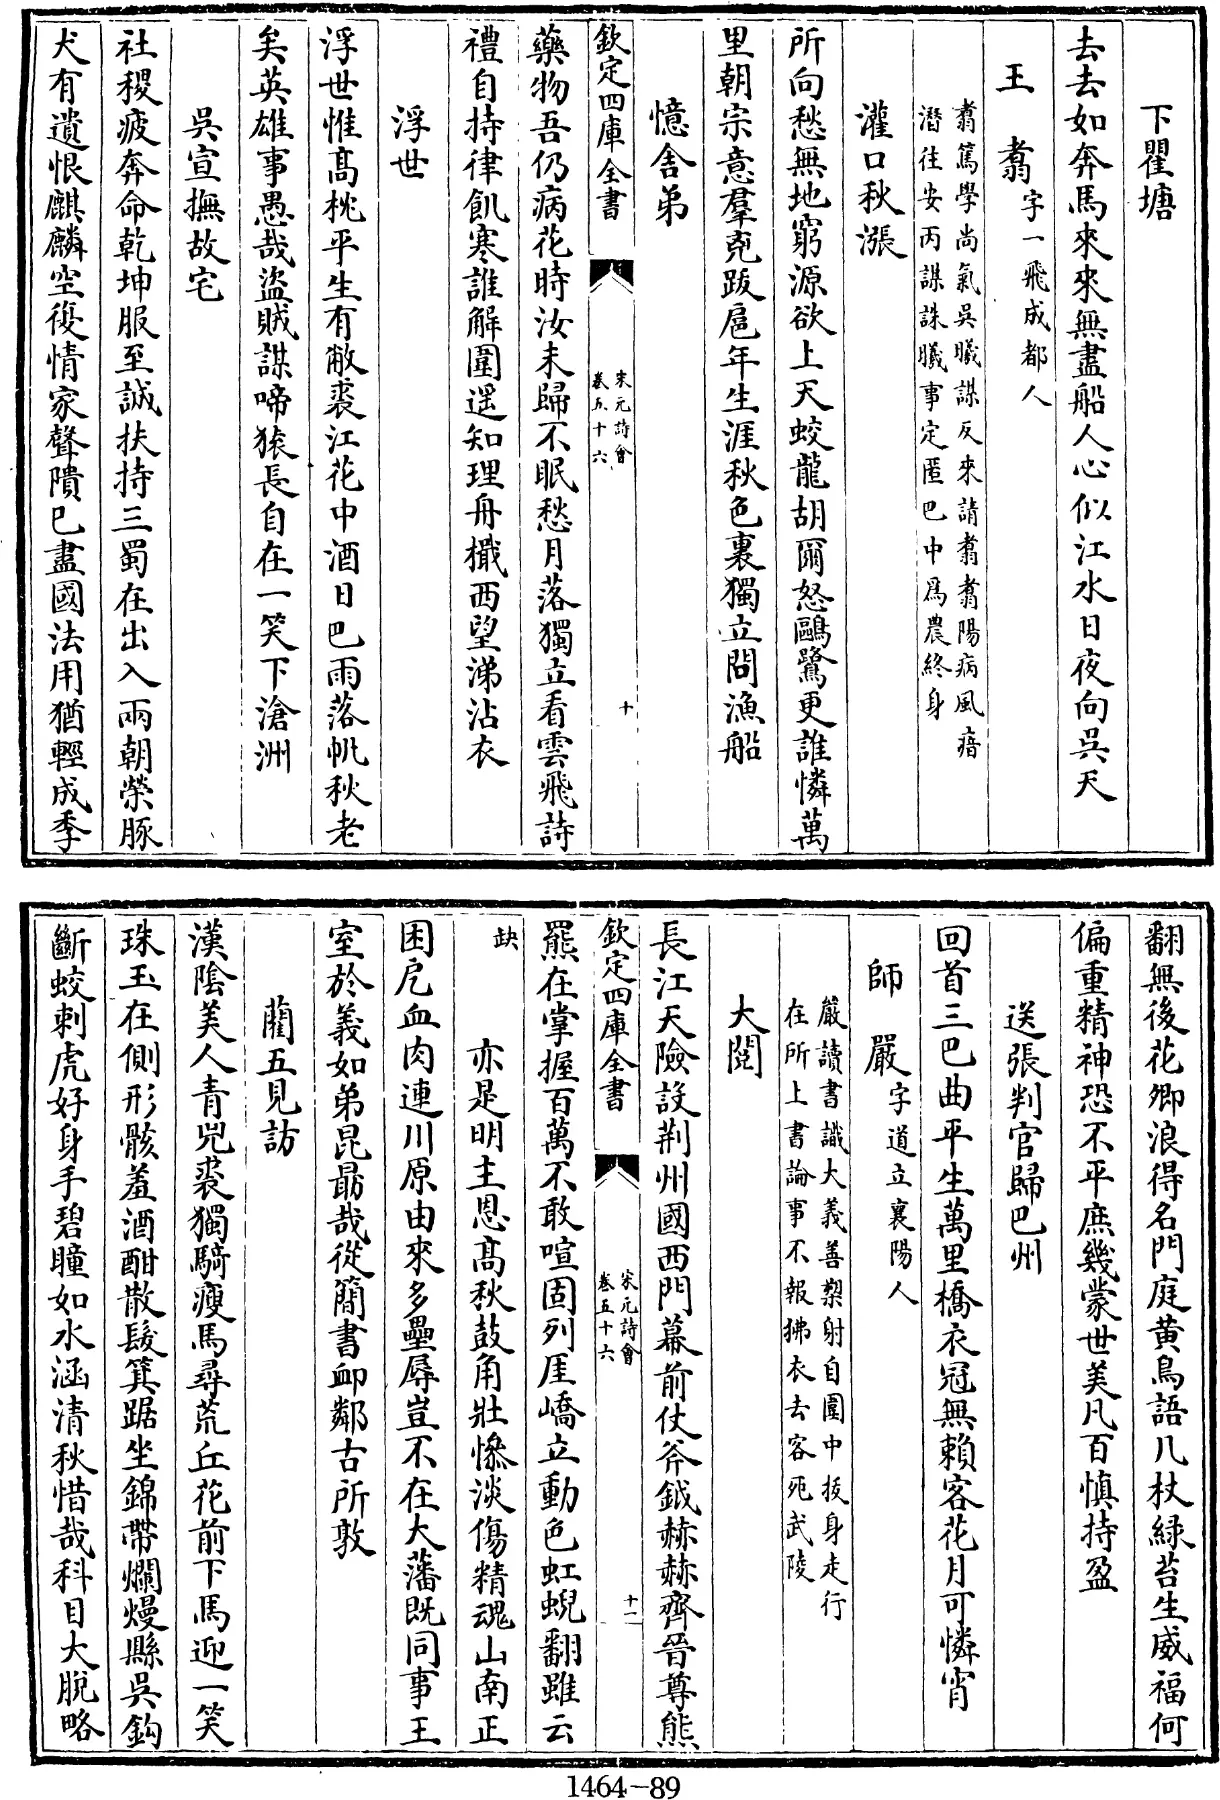 下瞿塘
去去如奔馬來來無盡船人心似江水日夜向吳天
王翥字一飛成都人
翥篤學尚氣吳曦謀反來請翥翥陽病風瘖
潛往安丙謀誅曦事定匿巴中爲農終身
灌口秋漲
所向愁無地窮源欲上天蛟龍胡爾怒鷗鷺更誰憐萬
里朝宗意羣兇跋扈年生涯秋色裏獨立問漁船
憶舍弟
欽定四庫全書
宋元詩會
卷五十六
十
藥物吾仍病花時汝未歸不眠愁月落獨立看雲飛詩
禮自持律飢寒誰解圍遥知理舟檝西望涕沾衣
浮世
浮世惟髙枕平生有敝裘江花中酒日巴雨落帆秋老
矣英雄事愚哉盜賊謀啼猿長自在一笑下滄洲
吳宣撫故宅
社稷疲奔命乾坤服至誠扶持三蜀在出入兩朝榮豚
犬有遺恨麒麟空復情家聲隤已盡國法用猶輕成季
翻無後花卿浪得名門庭黄鳥語几杖緑苔生威福何
偏重精神恐不平庶幾蒙世美凡百慎持盈
送張判官歸巴州
回首三巴曲平生萬里橋衣冠無賴客花月可憐宵
師嚴字道立襄陽人
嚴讀書識大義善槊射自圍中拔身走行
在所上書論事不報拂衣去客死武陵
大閱
長江天險設荆州國西門幕前仗斧鉞赫赫齊晉尊熊
欽定四庫全書
宋元詩會
卷五十六
十一
羆在掌握百萬不敢喧固列厓嶠立動色虹蜺翻雖云
缺亦是明主恩髙秋鼓角壯慘淡傷精魂山南正
困戹血肉連川原由來多壘辱豈不在大藩既同事王
室於義如弟昆勗哉從簡書卹鄰古所敦
藺五見訪
漢陰美人青兕裘獨騎瘦馬尋荒丘花前下馬迎一笑
珠玉在側形骸羞酒酣散髮箕踞坐錦帶爛熳縣吳鈎
斷蛟刺虎好身手碧瞳如水涵清秋惜哉科目大脫略
1464-89